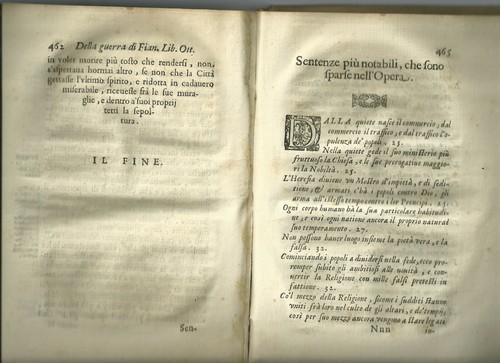 462 Della guerra di Fian. Lib. Ott.
in voler morire più tosto che rendersi, non
s'aspettaua hormai altro, se non che la Città
gettasse l'vltimo spirito, e ridotta in cadauero
miserabile, riceuesse frà le sue mura-
glie, e dentro a' suoi proprij
tetti la sepol-
tura.
IL FINE.
Sen-
465
Sentenze più notabili, che sono
sparse nell'Opera.
DALLA quiete nasce il commercio, dal
commercio il traffico, e dal traffico l'o-
pulenza de' popoli. 25.
Nella quiete gode il suo ministerio più
fruttuoso la Chiesa, e le sue prerogatiue maggio-
ri la Nobiltà. 25.
L'Heresia diuiene vn Mostro d'impietà, e di sedi-
tione, & armati c'hà i popoli contro Dio, gli
arma all'istesso tempo contro i lor Principi. 25.
Ogni corpo humano hà la sua particolare habitudi-
ne, e così ogni natione ancora il proprio natural
suo temperamento. 27.
Non possono hauer luogo insieme la pietà vera, e la
falsa. 32.
Cominciando i popoli a diuidersi nella fede, ecco pro-
romper subito gli ambitiosi alle nouità, e con-
uertir la Religione con mille falsi pretesti in
fattione. 32.
Co'l mezzo della Religione, sicome i sudditi stanno
vniti frà loro nel culto de gli altari, e de' tempij,
così per suo mezzo ancora vengono a stare legati
Nnn in-